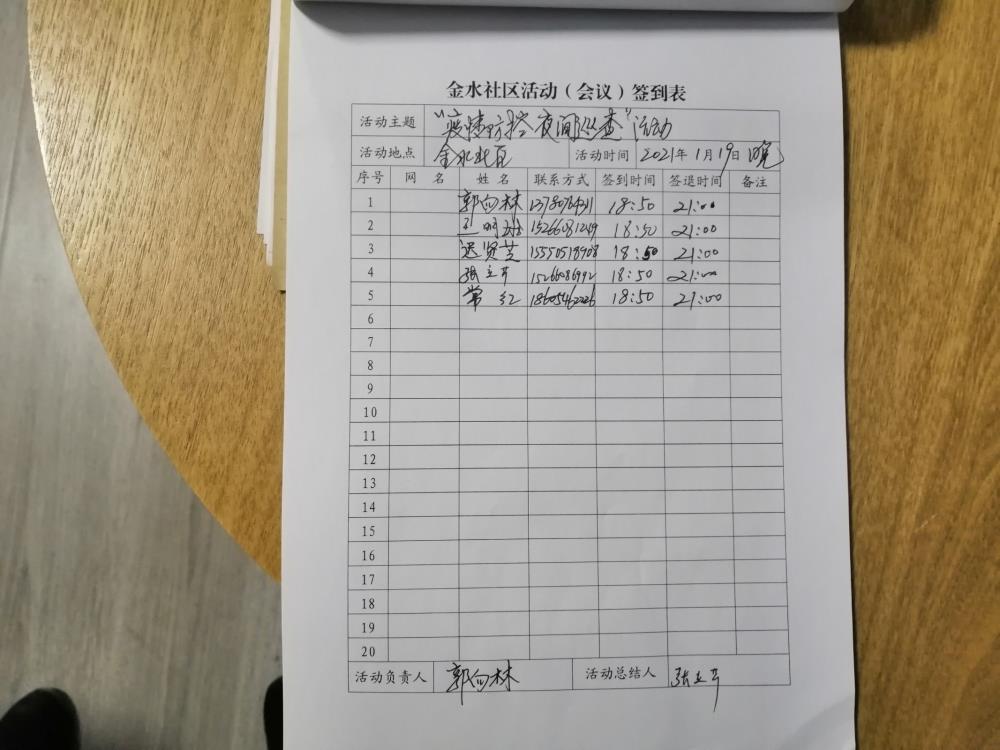 金水社区活动（会议）签到表
活动主题 “疫情防控夜间巡查”活动
活动地点 金水社区 活动时间 2021年1月19日 晚
序号 网 名 姓 名 联系方式 签到时间 签退时间 备注
1 郭向林 18:50 21:00
2 18:50 21:00
3 迟贤芝 15550518908 18:50 21:00
4 张立芹 15266086992 18:50 21:00
5 常红 18605462226 18:50 21:00
6
7
8
9
10
11
12
13
14
15
16
17
18
19
20
活动负责人 郭向林 活动总结人 张立芹